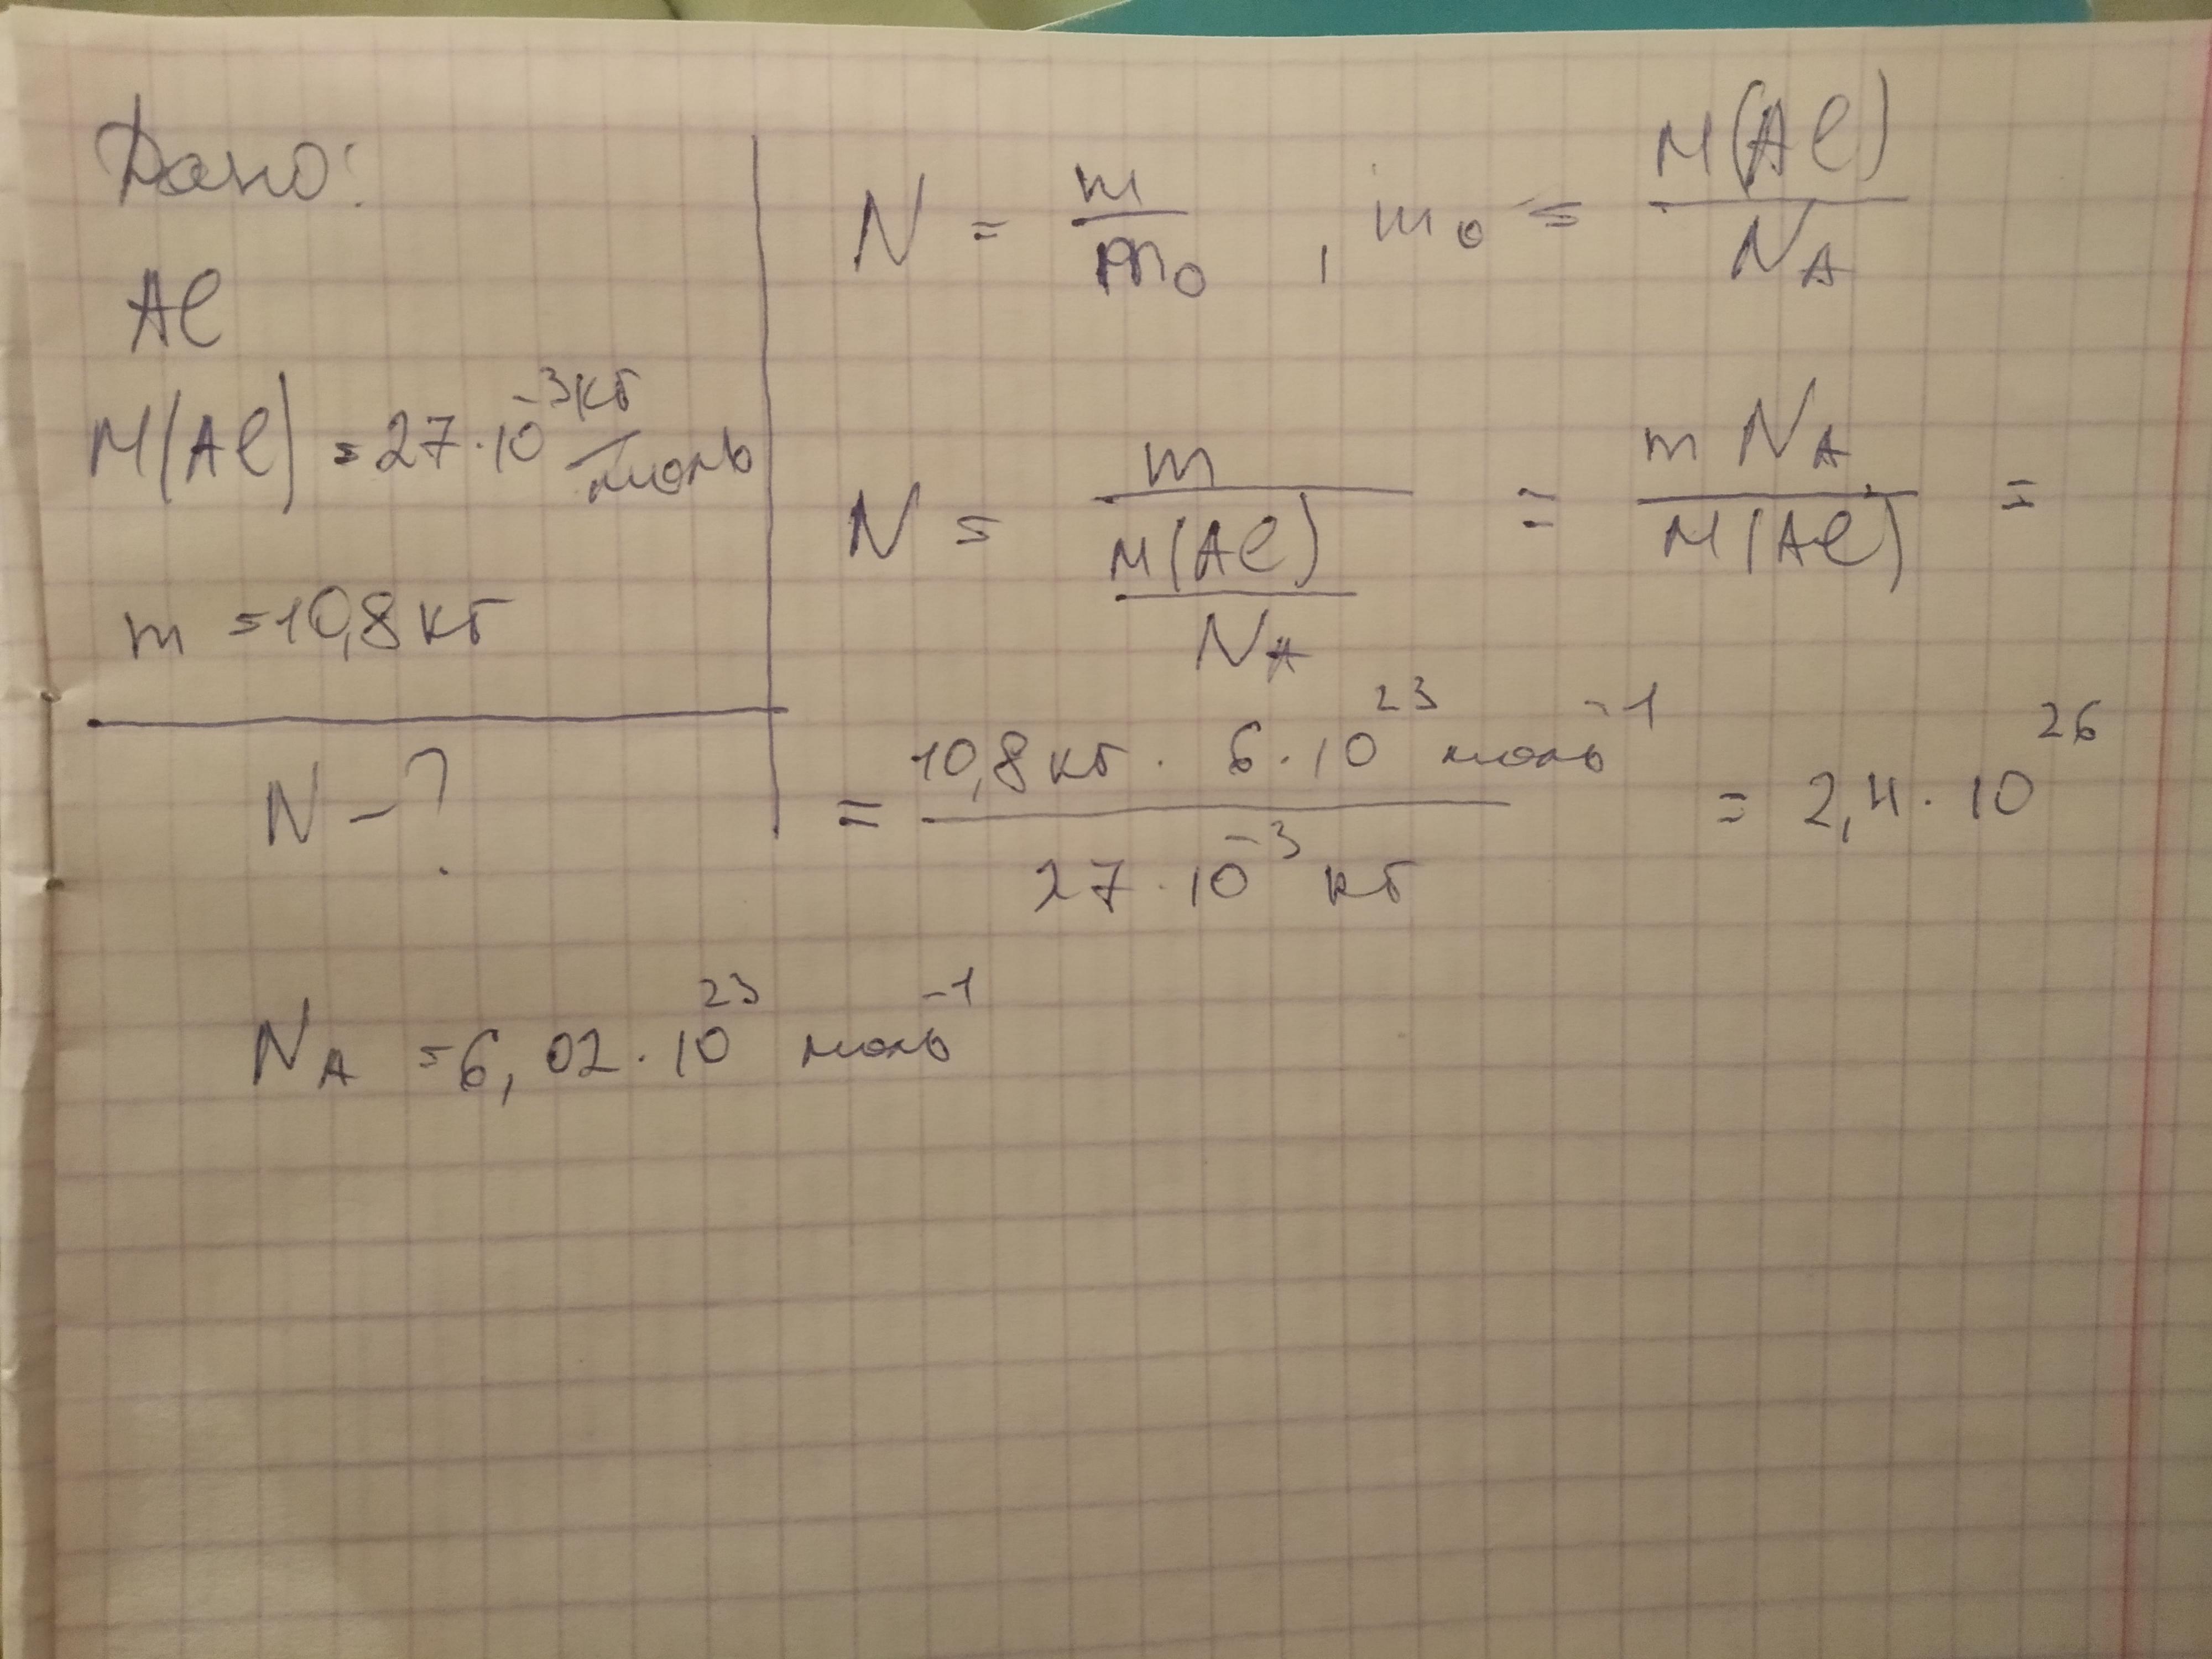 Дано:
Al
M(Al) = 27·10⁻³ кг/моль
m = 10,8 кг
N – ?
N = m/m₀ , m₀ = M(Al)/N_A
N = m/(M(Al)/N_A) = m N_A/M(Al) =
= 10,8 кг · 6·10²³ моль⁻¹/27·10⁻³ кг = 2,4·10²⁶
N_A = 6,02·10²³ моль⁻¹